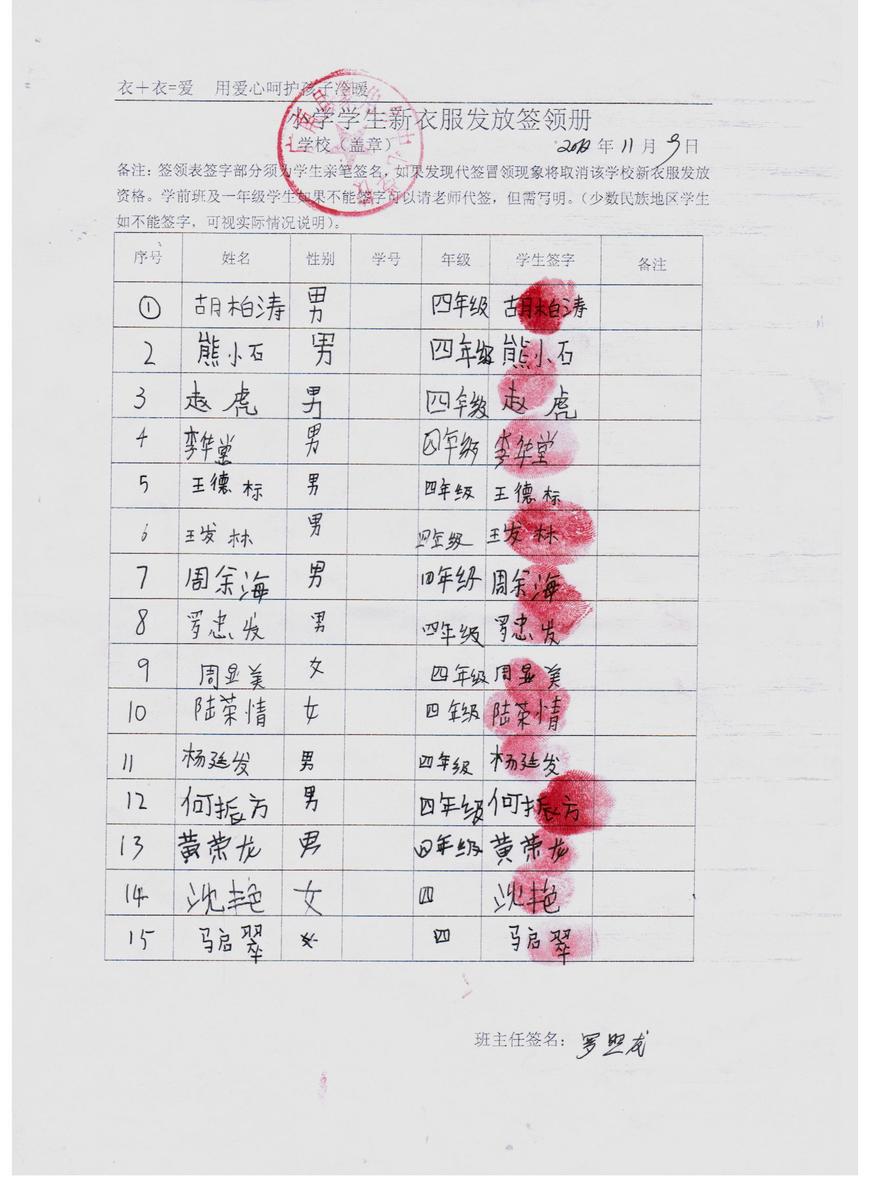 衣+衣=爱 用爱心呵护孩子冷暖
学学生新衣服发放签领册
学校（盖章） 年 11 月 9 日
备注：签领表签字部分须为学生亲笔签名，如果发现代签冒领现象将取消该学校新衣服发放
资格。学前班及一年级学生如果不能签字可以请老师代签，但需写明。（少数民族地区学生
如不能签字，可视实际情况说明）。
序号 姓名 性别 学号 年级 学生签字 备注
① 胡柏涛 男 四年级 胡柏涛
2 熊小石 男 四年级 熊小石
3 赵虎 男 四年级 赵虎
4 李华堂 男 四年级 李华堂
5 王德标 男 四年级 王德标
6 王发林 男 四年级 王发林
7 周余海 男 四年级 周余海
8 罗忠发 男 四年级 罗忠发
9 周显美 女 四年级 周显美
10 陆荣情 女 四年级 陆荣情
11 杨廷发 男 四年级 杨廷发
12 何振方 男 四年级 何振方
13 黄荣龙 男 四年级 黄荣龙
14 沈艳 女 四 沈艳
15 马启翠 女 四 马启翠
班主任签名：罗照龙